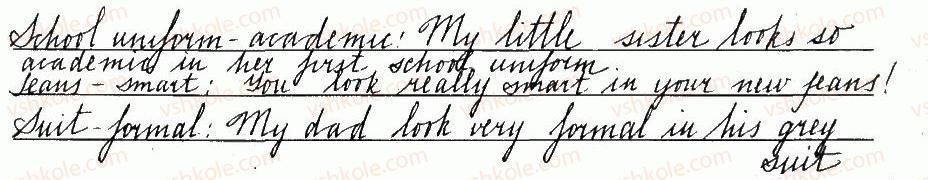 School uniform - academic: My little sister looks so
academic in her first school uniform.
Jeans - smart: You look really smart in your new jeans!
Suit - formal: My dad look very formal in his grey
suit